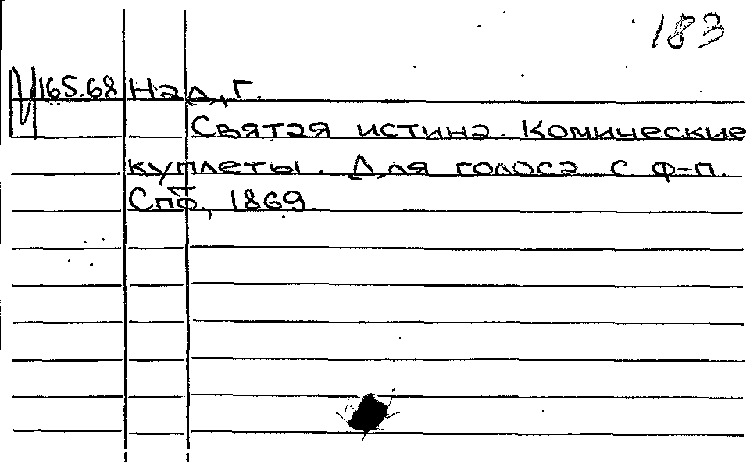 183
165.68 Над, Г.
Святая истина. Комические
куплеты. Для голоса с ф-п.
Спб., 1869